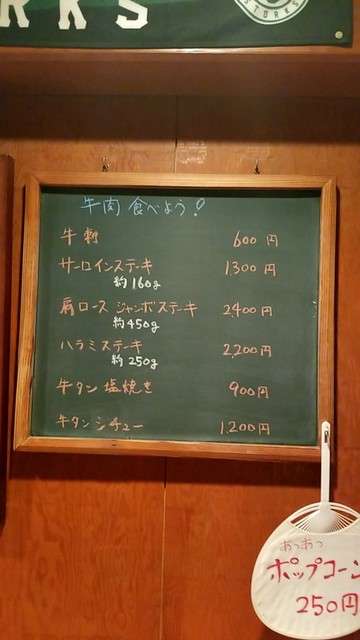 RKS
STORKS
牛肉 食べよう!
牛刺 600円
サーロインステーキ 1,300円
約160g
肩ロース ジャンボステーキ 2,400円
約450g
ハラミステーキ 2,200円
約250g
牛タン 塩焼き 900円
牛タンシチュー 1,200円
あつあつ
ポップコーン
250円